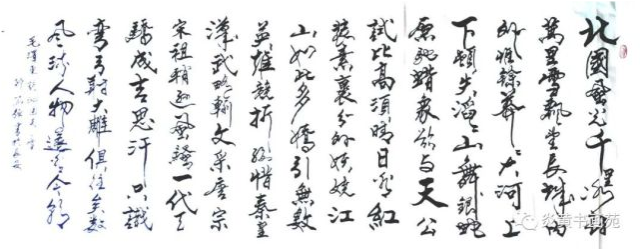 北國風光千里冰封
萬里雪飄望長城內
外惟餘莽々大河上
下頓失滔々山舞銀蛇
原馳蠟象欲与天公
試比高須晴日看紅
裝素裹分外妖嬈江
山如此多嬌引無數
英雄競折腰惜秦皇
漢武略輸文采唐宗
宋祖稍遜風騷一代天
驕成吉思汗只識
彎弓射大雕俱往矣數
風流人物還看今朝
毛澤東詞沁園春雪
書於長安
炎黄书画苑